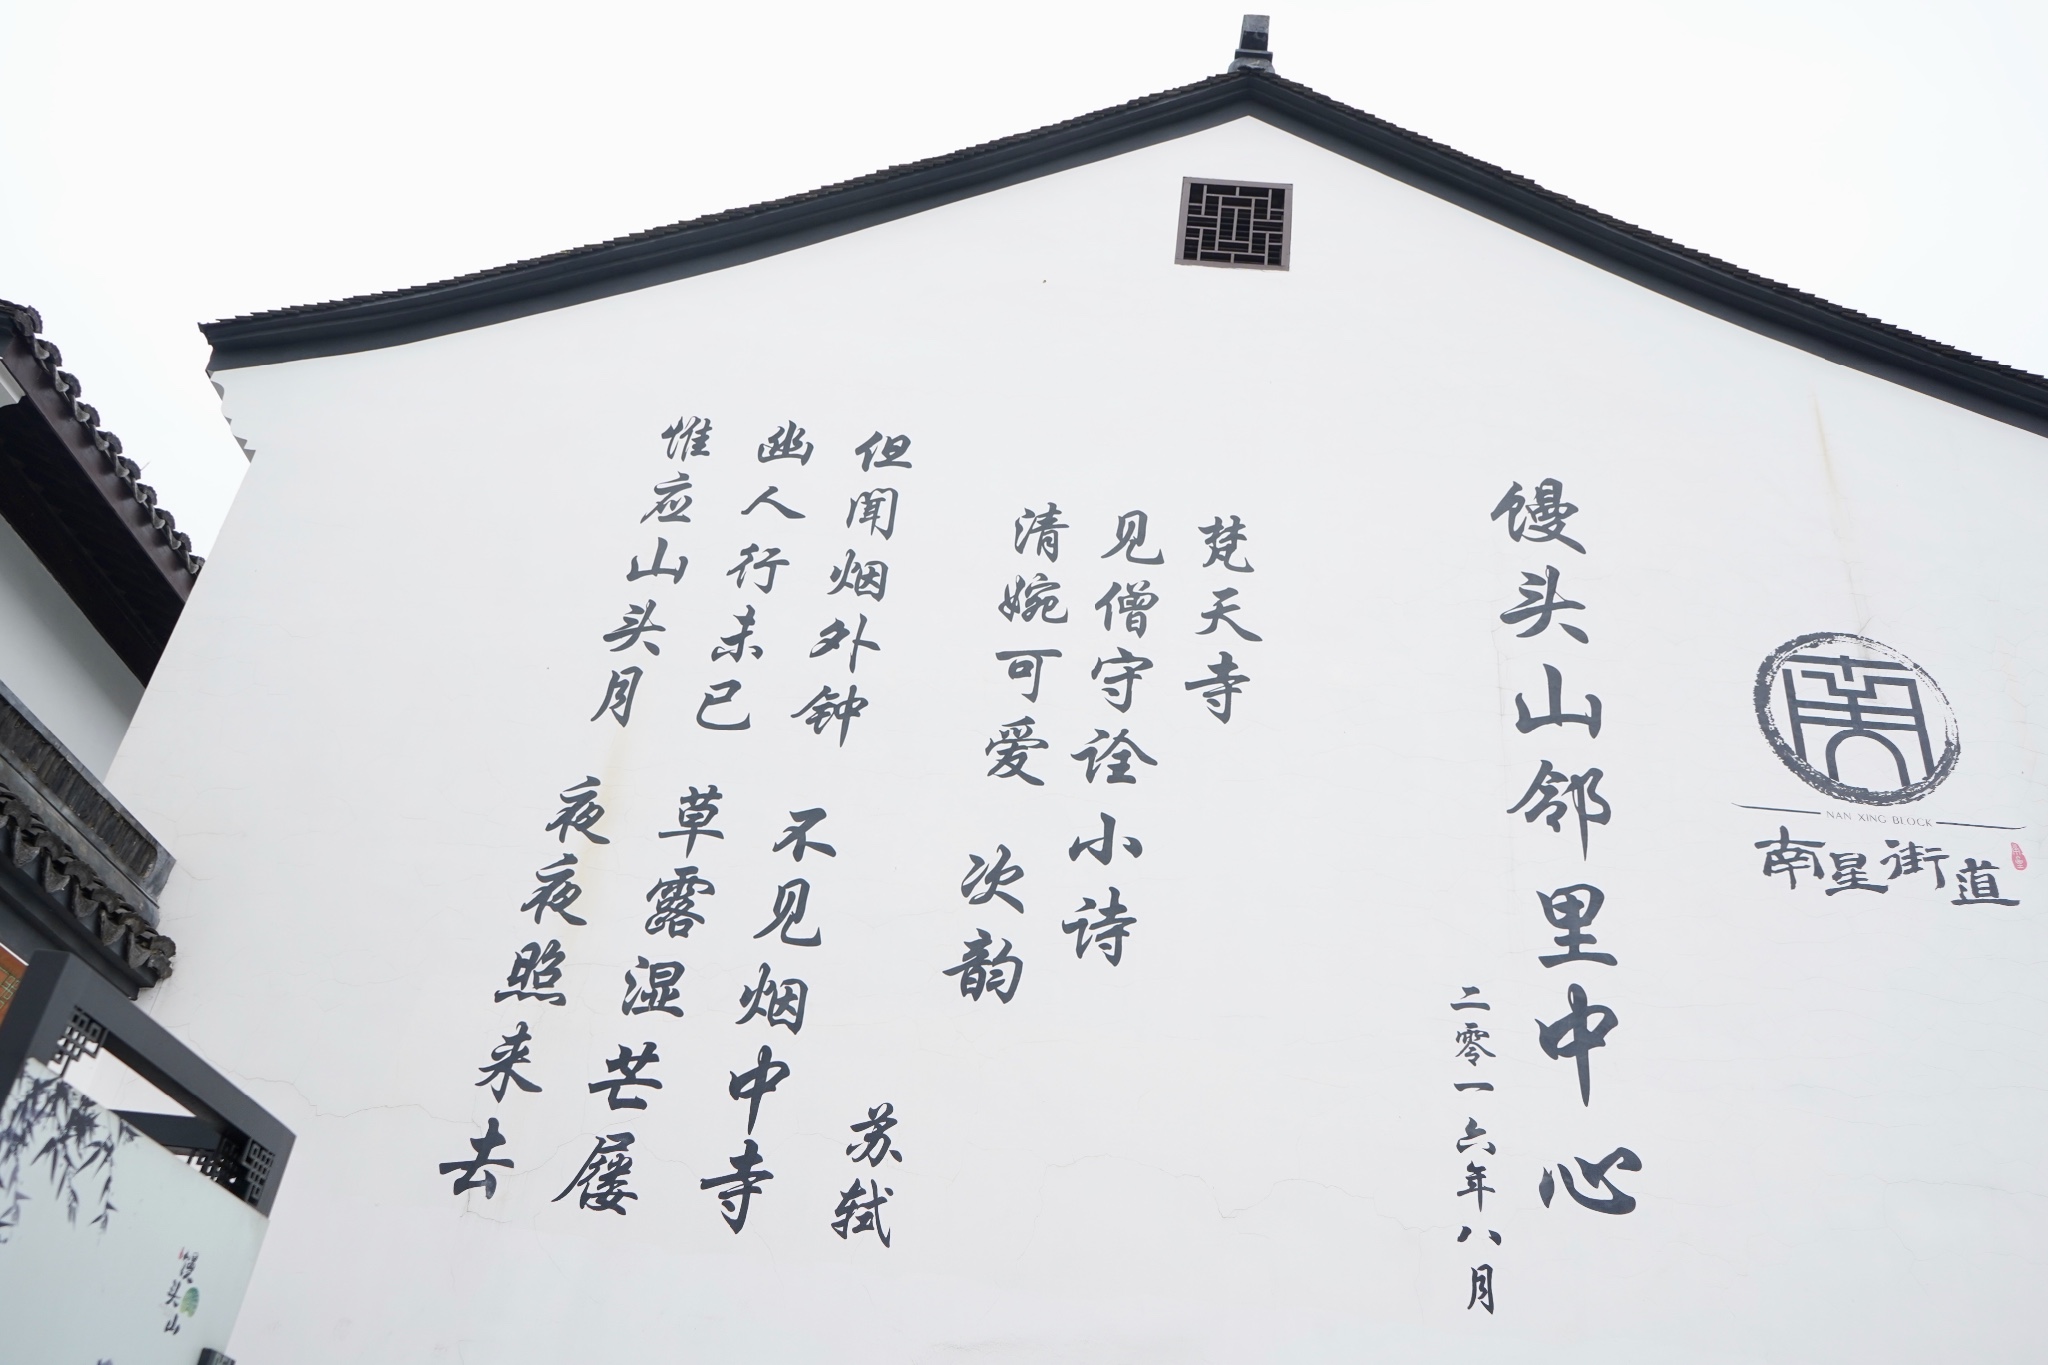 NAN XING BLOCK
南星街道
馒头山邻里中心
二零一六年八月
梵天寺
见僧守诠小诗
清婉可爱 次韵
苏轼
但闻烟外钟 不见烟中寺
幽人行未已 草露湿芒屦
惟应山头月 夜夜照来去
馒头山